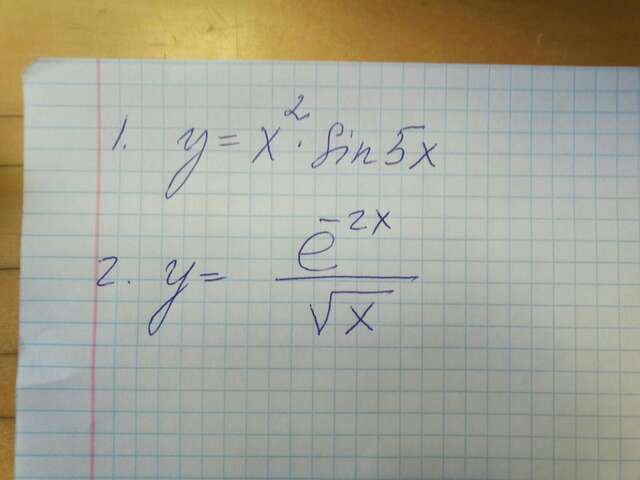 1. y = x² · sin 5x
2. y = e^{-2x} / √x